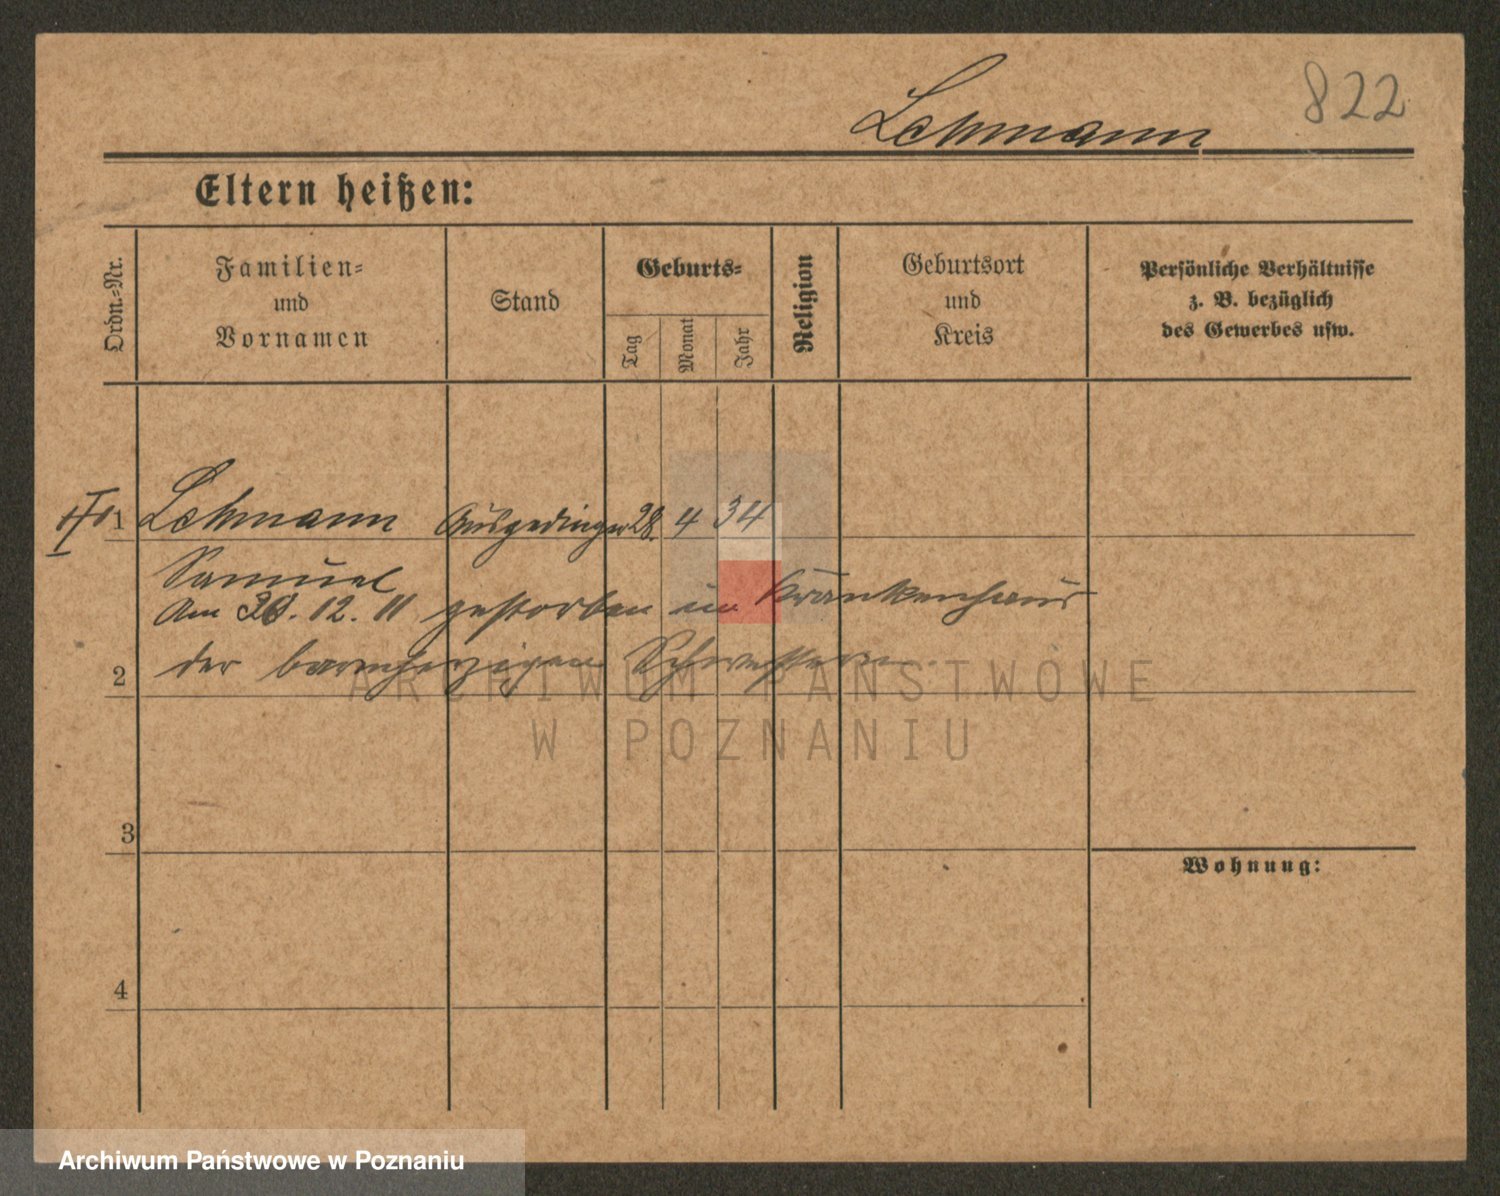 Lehmann
822
Eltern heißen:
Ordn.-Nr.
Familien-
und
Vornamen
Stand
Geburts-
Tag
Monat
Jahr
Religion
Geburtsort
und
Kreis
Persönliche Verhältnisse
z. B. bezüglich
des Gewerbes usw.
1 Lehmann Ausgedinger 28. 4 34
Samuel
Am 28. 12. 11 gestorben im Krankenhaus
der barmherzigen Schwestern.
2
ARCHIWUM PAŃSTWOWE
W POZNANIU
3
Wohnung:
4
Archiwum Państwowe w Poznaniu